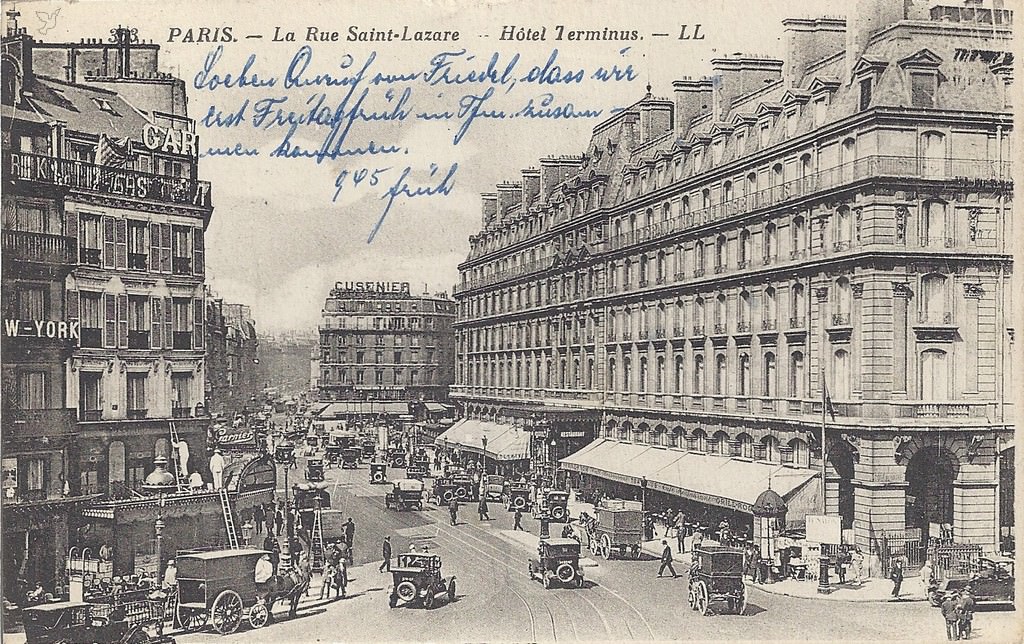 383 PARIS. — La Rue Saint-Lazare — Hôtel Terminus. — LL
Soeben Anruf von Friedel, dass wir
erst Freitagfrüh in Thm. zusam-
men kommen.
9 45 früh
GAR
W-YORK
CUSENIER
RESTAURANT